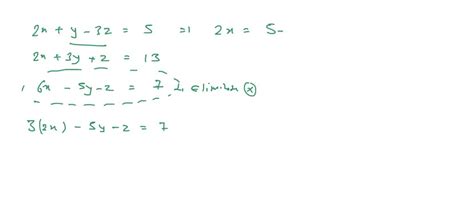 2x + y - 3z = 5 ⇒ 2x = 5-
2x + 3y + z = 13
6x - 5y - z = 7 } eliminate (x)
3(2x) - 5y - z = 7